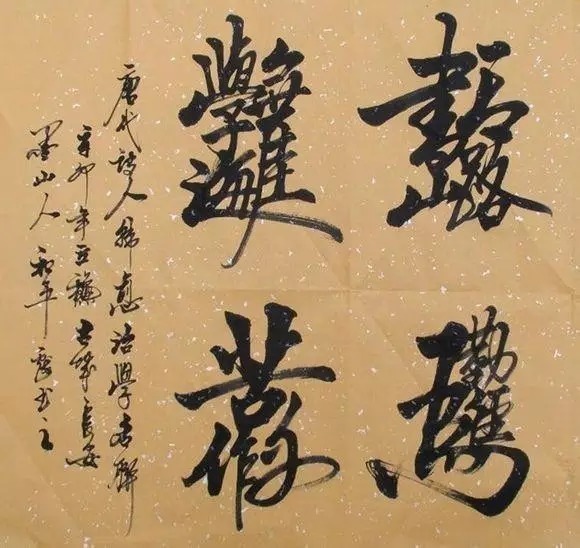 書山有路
勤為徑
學海無涯
苦作舟
唐代詩人韓愈治學名聯
辛卯年 長安
墨山人和平 書之